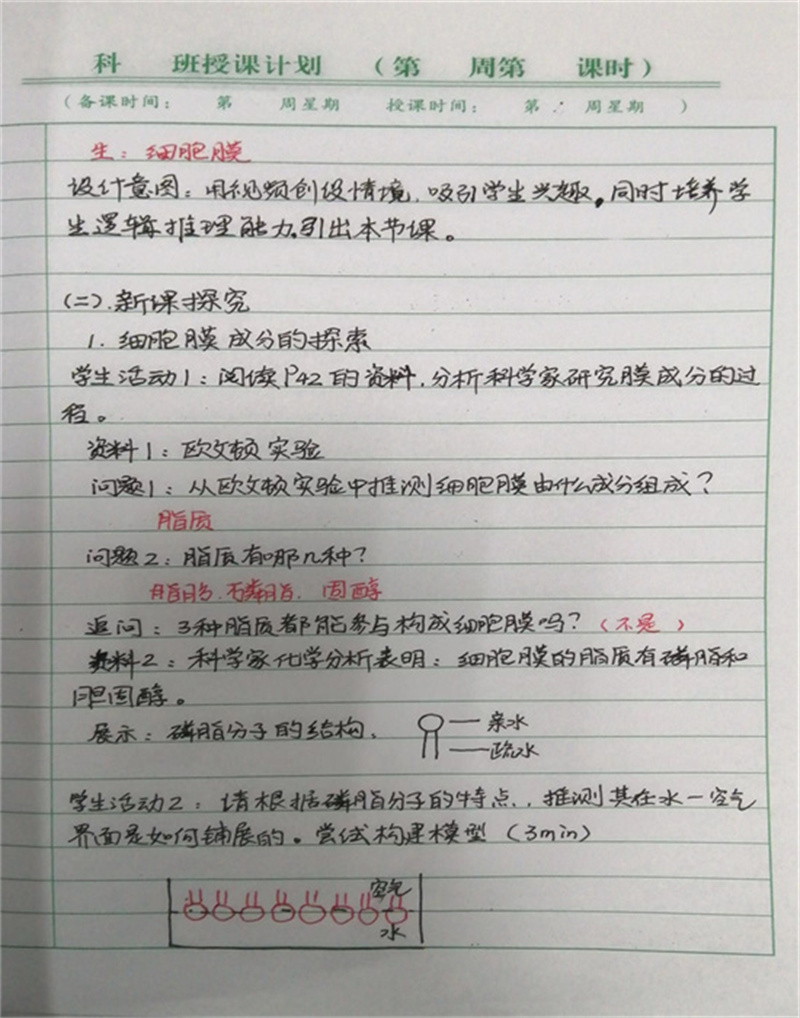 科 班授课计划 （第 周第 课时）
（备课时间： 第 周星期 授课时间： 第 周星期 ）
生：细胞膜
设计意图：用视频创设情境，吸引学生兴趣。同时培养学
生逻辑推理能力，引出本节课。
（二）.新课探究
1. 细胞膜成分的探索
学生活动1：阅读P42的资料，分析科学家研究膜成分的过
程。
资料1：欧文顿实验
问题1：从欧文顿实验中推测细胞膜由什么成分组成？
脂质
问题2：脂质有哪几种？
脂肪.磷脂. 固醇
追问：3种脂质都能参与构成细胞膜吗？（不是）
资料2：科学家化学分析表明：细胞膜的脂质有磷脂和
胆固醇。
展示：磷脂分子的结构.
亲水
疏水
学生活动2：请根据磷脂分子的特点，推测其在水-空气
界面是如何铺展的。尝试构建模型（3min）
空气
水